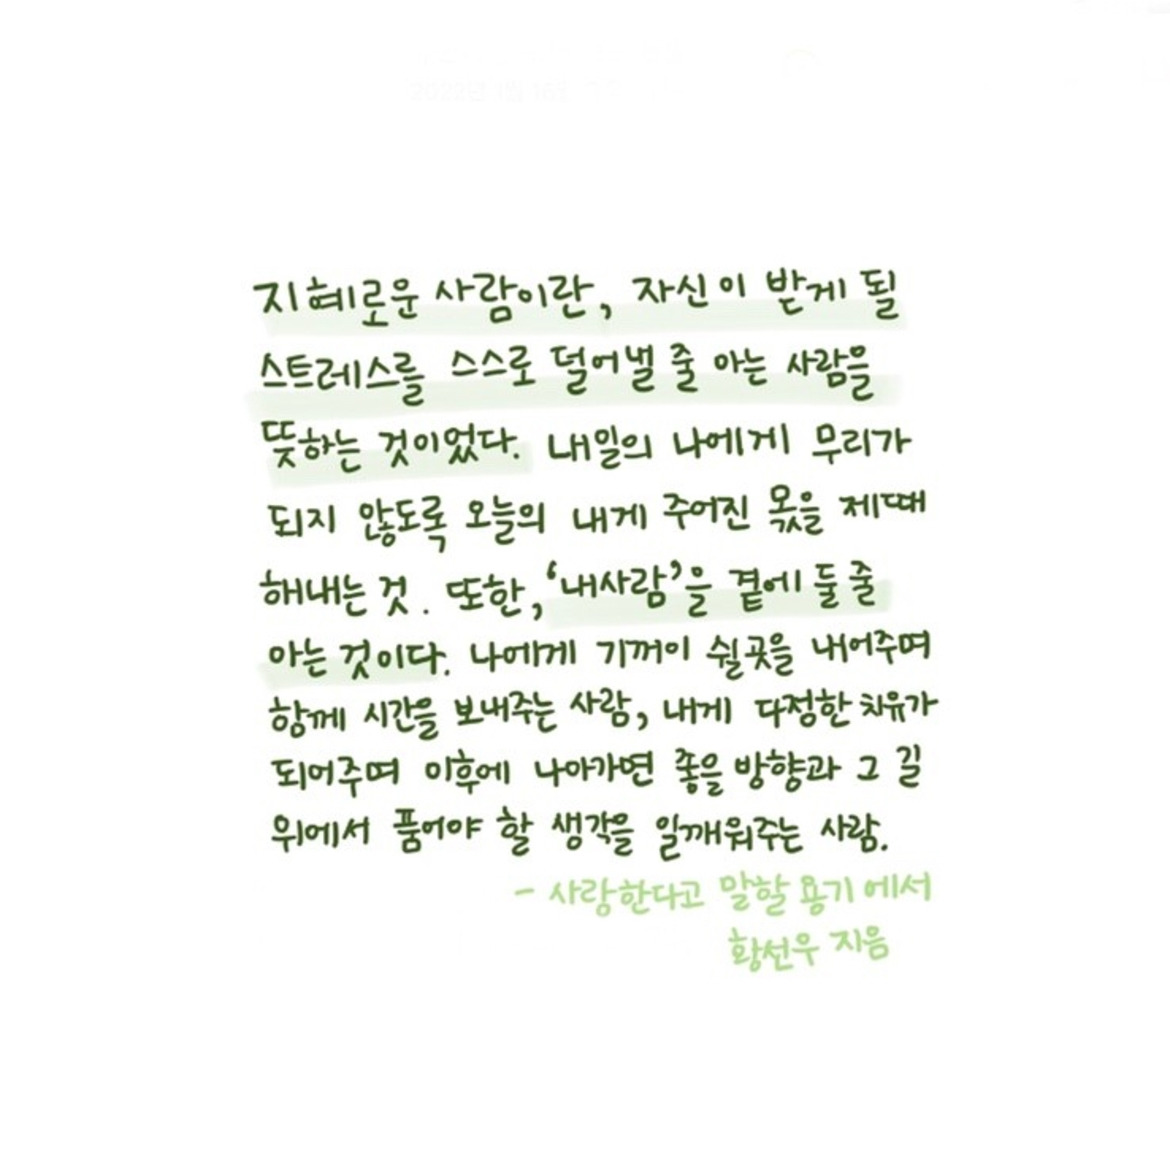 지혜로운 사람이란, 자신이 받게 될
스트레스를 스스로 덜어낼 줄 아는 사람을
뜻하는 것이었다. 내일의 나에게 무리가
되지 않도록 오늘의 내게 주어진 몫을 제때
해내는 것. 또한, ‘내사람’을 곁에 둘 줄
아는 것이다. 나에게 기꺼이 쉴곳을 내어주며
함께 시간을 보내주는 사람, 내게 다정한 치유가
되어주며 이후에 나아가면 좋을 방향과 그 길
위에서 품어야 할 생각을 일깨워주는 사람.
- 사랑한다고 말할 용기 에서
황선우 지음